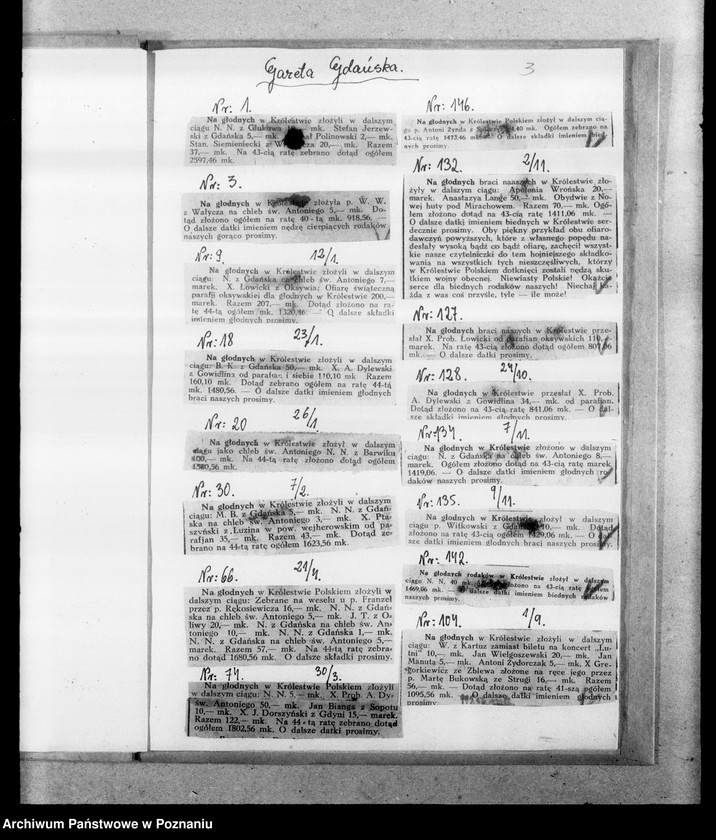 Gazeta Gdańska.
3
Nr: 1.
Na głodnych w Królestwie złożyli w dalszym
ciągu N. N. z Głukowa mk. Stefan Jerzew-
ski z Gdańska 5,— mk. Polinowski 2,— mk.
Stan. Siemieniecki z 20,— mk. Razem
37,— mk. Na 43-cią ratę zebrano dotąd ogółem
2597,46 mk.
Nr: 3.
Na głodnych w złożyła p. W. W.
z Wałycza na chleb św. Antoniego 5,— mk. Do-
tąd złożono ogółem na ratę 40-tą mk. 918,56. —
O dalsze datki imieniem nędzę cierpiących rodaków
naszych gorąco prosimy.
Nr: 9 12/1.
Na głodnych w Królestwie złożyli w dalszym
ciągu: N. z Gdańska na chleb św. Antoniego 7,—
marek. X. Łowicki z Oksywia: Ofiarę świąteczną
parafji oksywskiej dla głodnych w Królestwie 200,—
marek. Razem 207,— mk. Dotąd złożono na ra-
tę 44-tą ogółem mk. 1320,46 — O dalsze składki
imieniem głodnych prosimy.
Nr: 18 23/1.
Na głodnych w Królestwie złożyli w dalszym
ciągu: B. K. z Gdańska 50,— mk. X. A. Dylewski
z Gowidlina od parafian i siebie 110,10 mk Razem
160,10 mk. Dotąd zebrano ogółem na ratę 44-tą
mk. 1480,56. — O dalsze datki imieniem głodnych
braci naszych prosimy.
Nr: 20 26/1.
Na głodnych w Królestwie złożył w dalszym
ciągu jako chleb św. Antoniego N. N. z Barwiku
100,— mk. Na 44-tą ratę złożono dotąd ogółem
1580,56 mk.
Nr: 30. 7/2.
Na głodnych w Królestwie złożyli w dalszym
ciągu: M. B. z Gdańska 5,— mk. N. N. z Gdań-
ska na chleb św. Antoniego 3,— mk. X. Pta-
szyński z Luzina w pow. wejherowskim od pa-
rafjan 35,— mk. Razem 43,— mk. Dotąd ze-
brano na 44-tą ratę ogółem 1623,56 mk.
Nr: 66. 21/4.
Na głodnych w Królestwie Polskiem złożyli w
dalszym ciągu: Zebrane na weselu u p. Franzel
przez p. Rękosiewicza 16,— mk. N. N. z Gdań-
ska na chleb św. Antoniego 5,— mk. J. T. z O-
liwy 20,— mk. N. z Gdańska na chleb św. An-
toniego 10,— mk. N. N. z Gdańska 1,— mk.
N. N. z Gdańska na chleb św. Antoniego 5,—
marek. Razem 57,— mk. Na 44-tą ratę zebra-
no dotąd mk 1680,56 mk. O dalsze składki prosimy.
Nr: 74 30/3.
Na głodnych w Królestwie Polskiem złożyli
w dalszym ciągu: N. N. 5,— mk. X. Prob. A. Dy-
św. Antoniego 50,— mk. Jan Bianga z Sopotu
10,— mk. X. J. Dorszyński z Gdyni 15,— marek.
Razem 122,— mk. Na 44-tą ratę zebrano dotąd
ogółem 1802,56 mk. O dalsze datki prosimy.
Nr: 146.
Na głodnych w Królestwie Polskiem złożył w dalszym cią-
gu p. Antoni Żynda z 40 mk. Ogółem zebrano na
43-cią ratę 1473,46 mk. O dalsze składki imieniem bied-
nych prosimy.
Nr: 132 2/11.
Na głodnych braci naszych w Królestwie zło-
żyły w dalszym ciągu: Apolonia Wrońska 20,—
marek. Anastazya Lange 50,— mk. Obydwie z No-
wej huty pod Mirachowem. Razem 70,— mk. Ogó-
łem złożono dotąd na 43-cią ratę 1411,06 mk. —
O dalsze datki imieniem biednych w Królestwie ser-
decznie prosimy. Oby piękny przykład obu ofiaro-
dawczyń powyższych, które z własnego popędu na-
desłały wysoką bądź co bądź ofiarę, zachęcił wszyst-
kie nasze czytelniczki do tem hojniejszego składko-
wania na wszystkich tych nieszczęśliwych, którzy
w Królestwie Polskiem dotknięci zostali nędzą sku-
tkiem wojny obecnej. Niewiasty Polskie! Okażcie
serce dla biednych rodaków naszych! Niechaj ka-
żda z was coś przyśle, tyle — ile może!
Nr: 127.
Na głodnych braci naszych w Królestwie prze-
słał X. Prob. Łowicki od parafian oksywskich 110,—
marek. Na ratę 43-cią złożono dotąd ogółem 807,06
mk. — O dalsze datki prosimy.
Nr: 128. 24/10.
Na głodnych w Królestwie przesłał X. Prob.
A. Dylewski z Gowidlina 34,— mk. od parafian.
Dotąd złożono na 43-cią ratę 841,06 mk. — O dal-
sze składki imieniem głodnych prosimy.
Nr: 134. 7/11.
Na głodnych w Królestwie złożono w dalszym
ciągu: N. z Gdańska na chleb św. Antoniego 8,—
marek. Ogółem złożono dotąd na 43-cią ratę marek
1419,06. — O dalsze datki imieniem głodnych ro-
daków naszych prosimy.
Nr: 135. 9/11.
Na głodnych w Królestwie złożył w dalszym
ciągu p. Witkowski z Gdańska 10,— mk. Dotąd
złożono na ratę 43-cią ogółem 1429,06 mk. — O dal-
sze datki imieniem głodnych braci naszych prosimy.
Nr: 142.
Na głodnych rodaków w Królestwie złożył w dalszym
ciągu N. N. 40 mk. złożono na 43-cią ratę
1469,06 mk. — dalsze datki imieniem biednych rodaków
naszych prosimy.
Nr: 104. 1/9.
Na głodnych w Królestwie złożyli w dalszym
ciągu: W. z Kartuz zamiast biletu na koncert „Lu-
tni" 10,— mk. Jan Wielgoszewski 20,— mk. Jan
Manuta 5,— mk. Antoni Zydorczak 5,— mk, X Gre-
gorkiewicz ze Zblewa złożone na ręce jego przez
p. Martę Bukowską ze Strugi 16,— mk. Razem
56,— mk. — Dotąd złożono na ratę 41-szą ogółem
1095,56 mk. — O dalsze datki imieniem głodnych
prosimy.
Archiwum Państwowe w Poznaniu